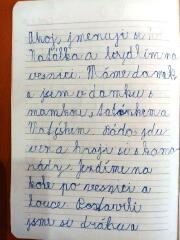 Ahoj, jmenuji se
Natálka a bydlím na
vesnici. Máme domek
a jsem v domku s
mamkou, tatínkem a
Matýskem. Ráda jdu
ven a hraji si s kama
rády. Jezdíme na
kole po vesnici a
louce Postavili
jsme si